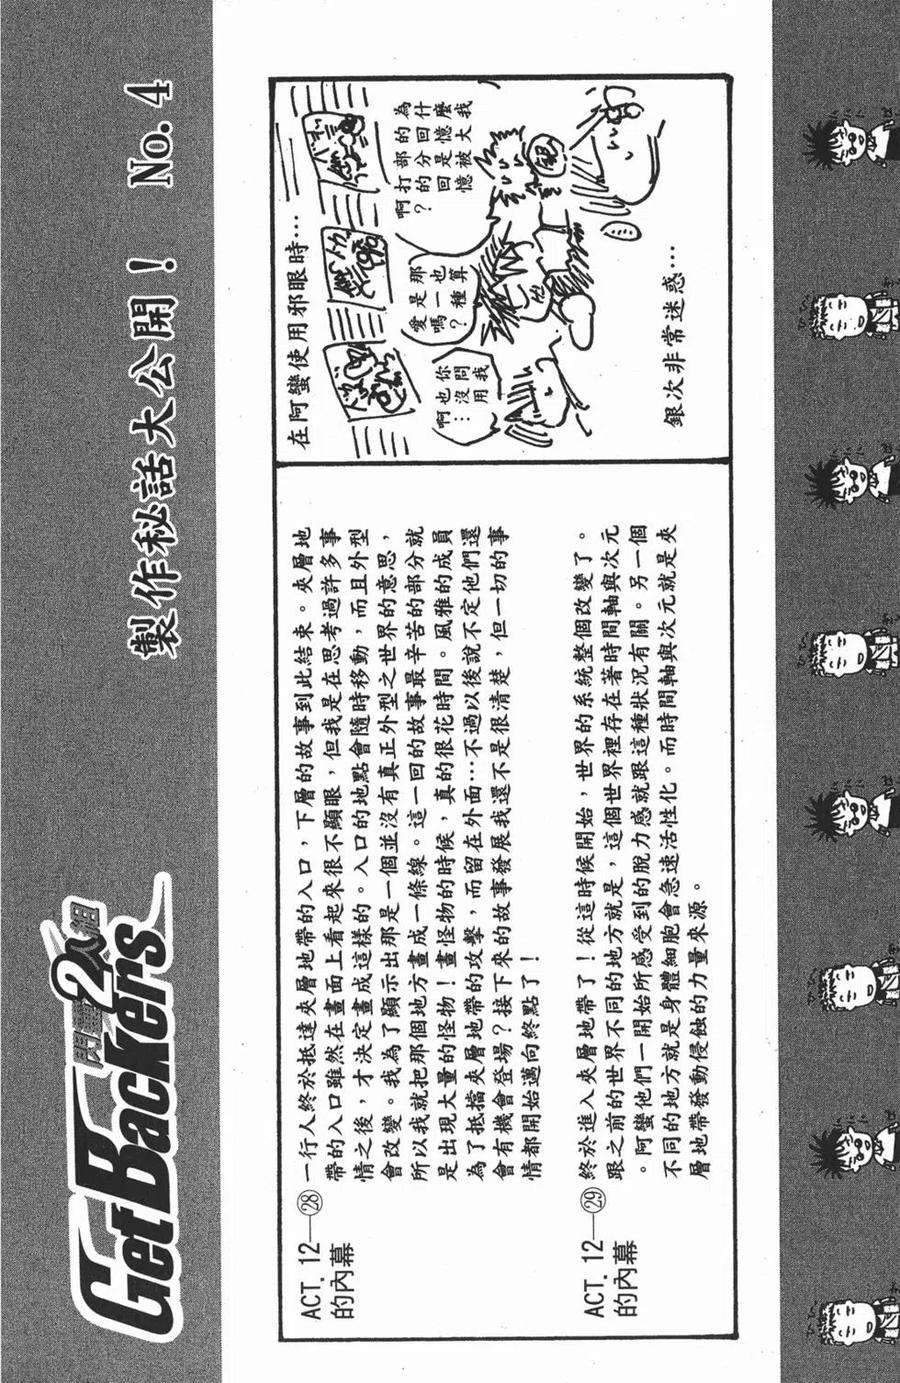 閃靈2人組
GetBackers
製作秘話大公開！ No. 4
在阿蠻使用邪眼時…
為什麼我
的回憶大
部分是被
打的回憶
啊？
那也算
是一種
愛嗎？
你問我
也沒用
啊…
銀
銀次非常迷惑…
ACT. 12—㉘
的內幕
一行人終於抵達夾層地帶的入口，下層的故事到此結束。夾層地
帶的入口雖然在畫面上看起來很不顯眼，但我是在思考過許多事
情之後，才決定畫成這樣的。入口的地點會隨時移動，而且外型
會改變。我為了顯示出那是一個並沒有真正外型之世界的意思，
所以我就把那個地方畫成一條線。這一回的故事最辛苦的部分就
是出現大量的怪物！畫怪物的時候，真的很花時間。風雅的成員
為了抵擋夾層地帶的攻擊，而留在外面…不過以後說不定他們還
會有機會登場？接下來的故事發展我還不是很清楚，但一切的事
情都開始邁向終點了！
ACT. 12—㉙
的內幕
終於進入夾層地帶了！從這時候開始，世界的系統整個改變了。
跟之前的世界不同的地方就是，這個世界裡存在著時間軸與次元
。阿蠻他們一開始所感受到的脫力感就跟這種狀況有關。另一個
不同的地方就是身體細胞會急速活性化。而時間軸與次元就是夾
層地帶發動侵蝕的力量來源。